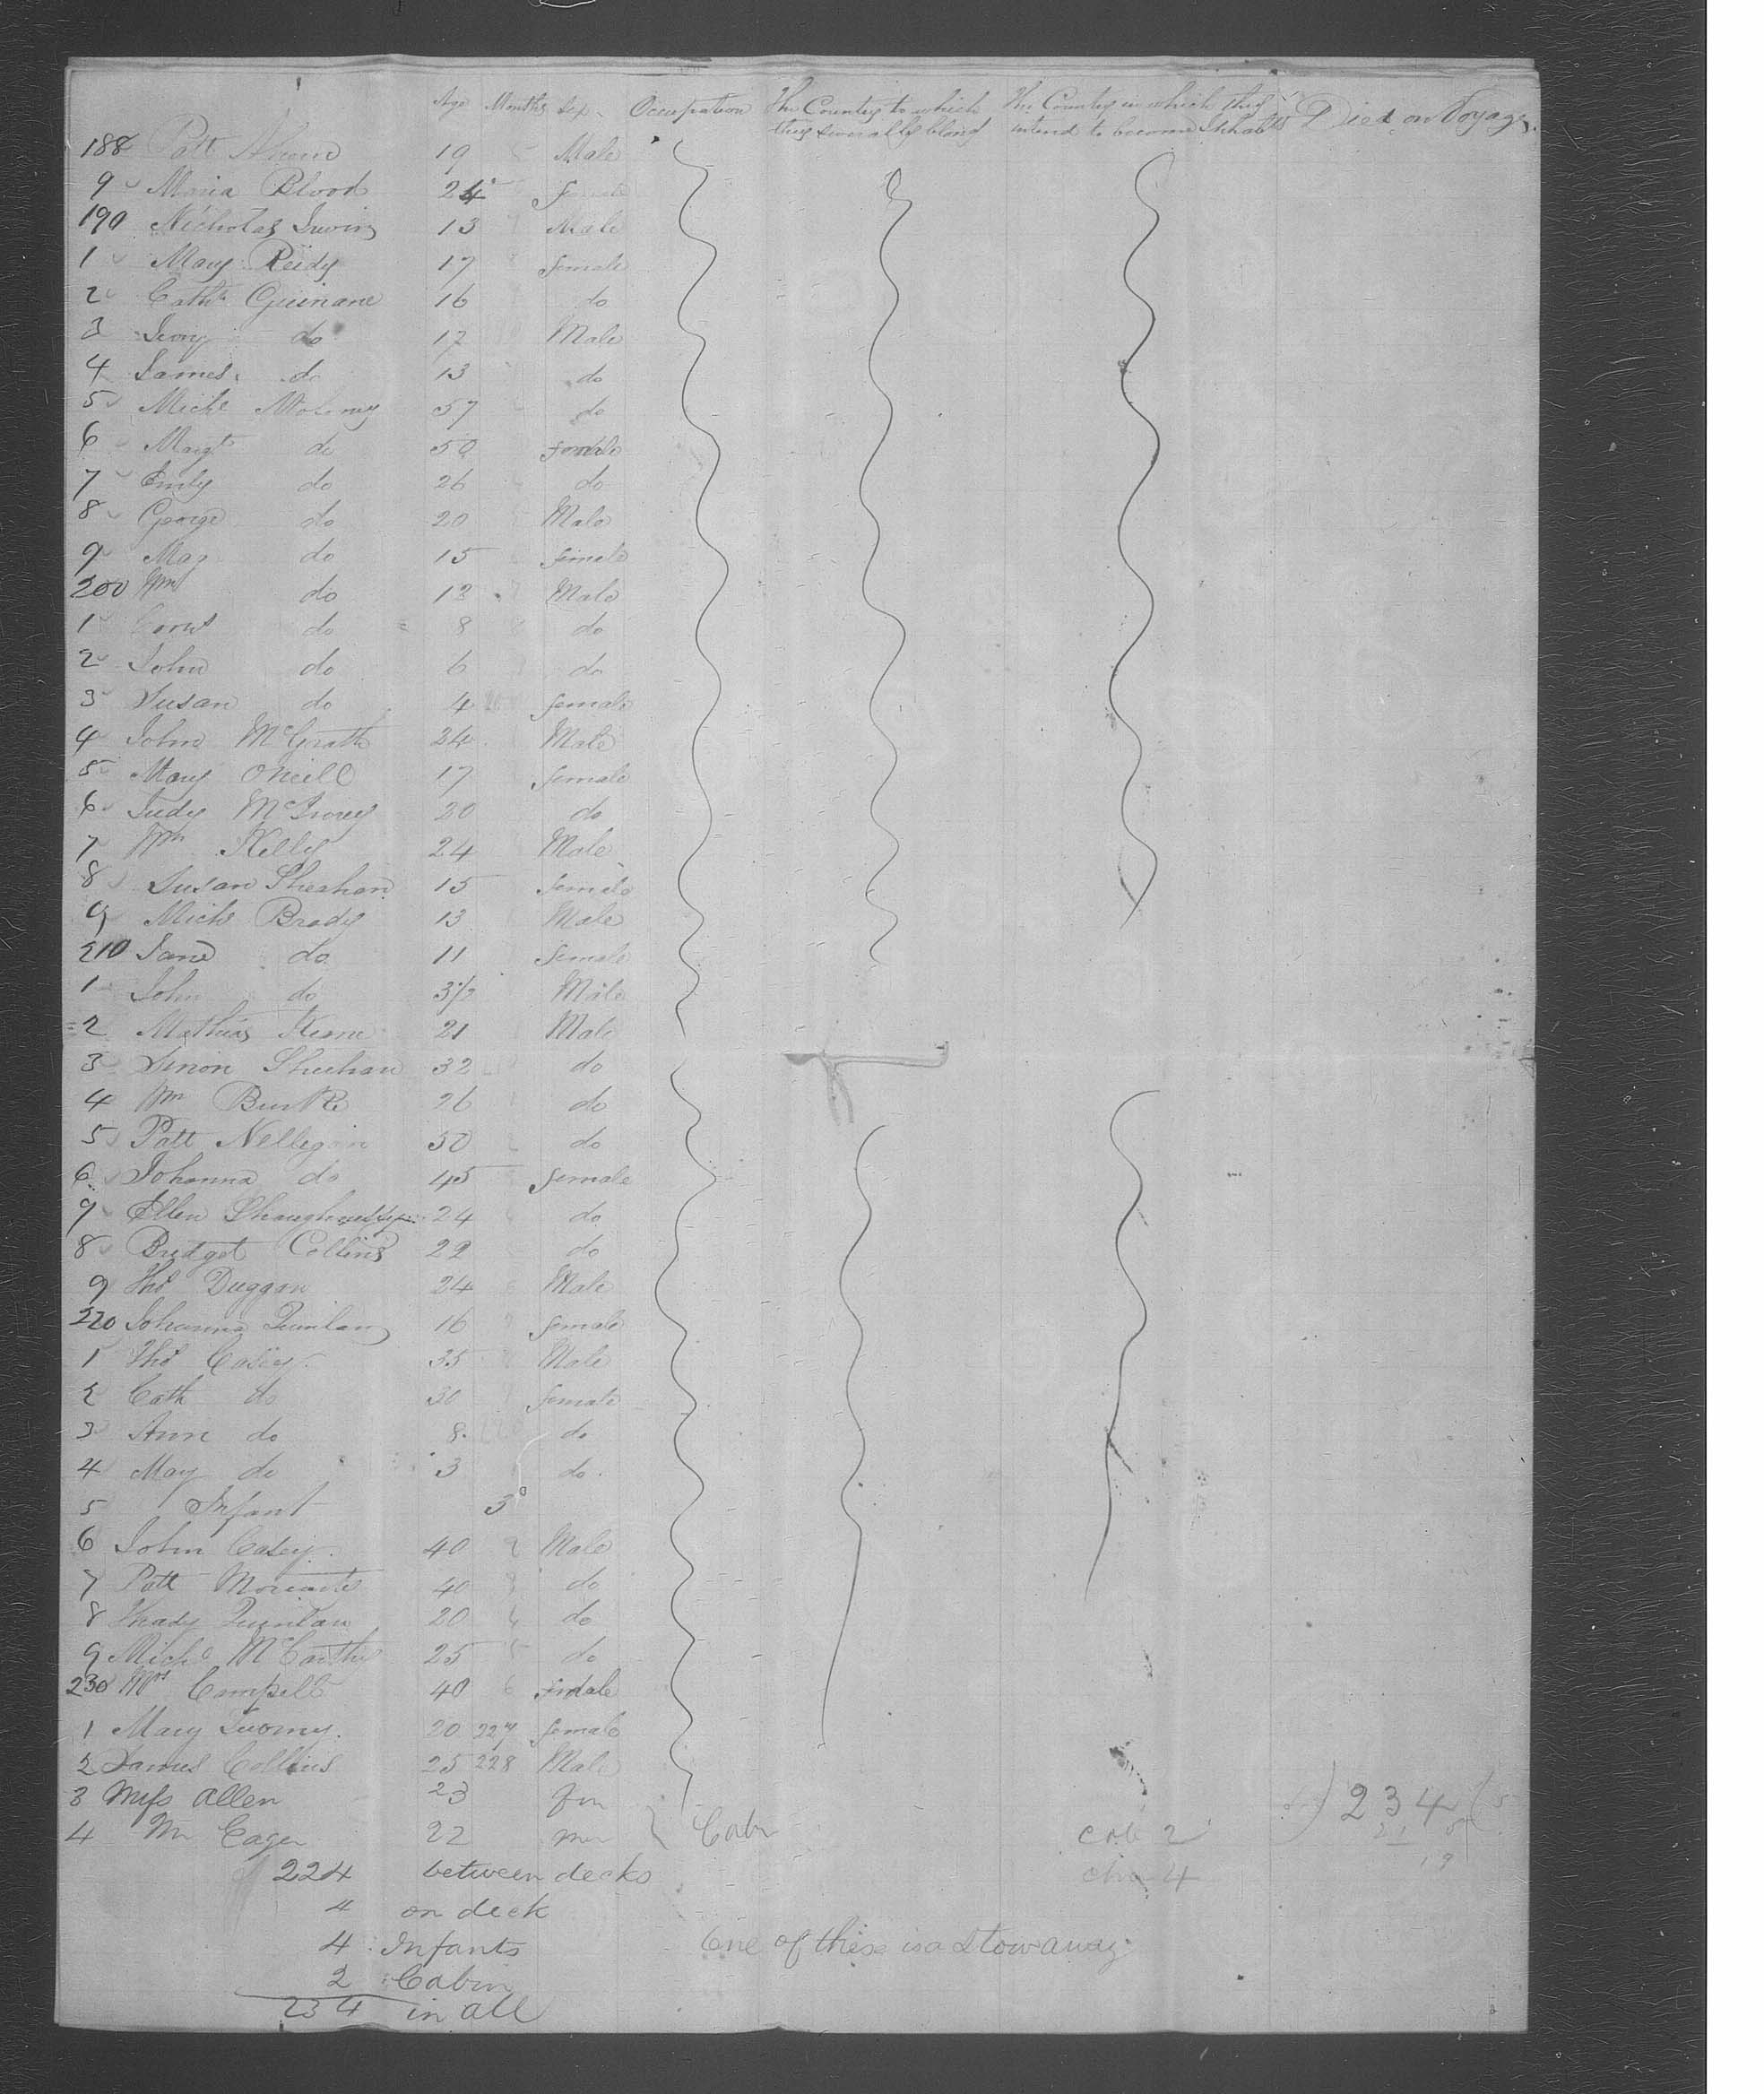 Age Months Sex Occupation The Country to which they severally belong The Country in which they intend to become Inhabts Died on Voyage.
188 Patt 19 Male
9 Maria Blood 24 female
190 Nicholas Irwin 13 Male
1 Mary Reidy 17 female
2 Cathe Guinane 16 do
3 do 12 Male
4 James do 13 do
5 Michl Moloney 57 do
6 Margt do 50 female
7 Emily do 26 do
8 George do 20 Male
9 May do 15 female
200 Wm do 12 Male
1 do 8 do
2 John do 6 do
3 Susan do 4 female
4 John McGrath 24 Male
5 Mary ONeill 17 female
6 Judy 20 do
7 Wm Kelly 24 Male
8 Susan Sheahan 15 female
9 Michl Brady 13 Male
210 Jane do 11 female
1 John do 3½ Male
2 Mathias 21 Male
3 Simon Sheehan 32 do
4 Wm Burke 26 do
5 Patt 50 do
6 Johanna do 45 female
7 Ellen Shaughnessy 24 do
8 Bridget Collins 22 do
9 Thos Duggan 24 Male
220 Johanna Quinlan 16 female
1 Thos Casey 35 Male
2 Cath do 30 female
3 Ann do 8 do
4 May do 3 do
5 Infant 3
6 John Casey 40 Male
7 Patt 40 do
8 Thady Quinlan 20 do
9 Michl McCarthy 25 do
230 Mrs Campell 40 female
1 Mary Twomy 20 227 female
2 James Collins 25 228 Male
3 Miss Allen 23 fm
4 Mr Eager 22 Cabn cab 2 234
224 between decks 4
4 on deck
4 Infants One of these is a Stowaway
2 Cabin
234 in all